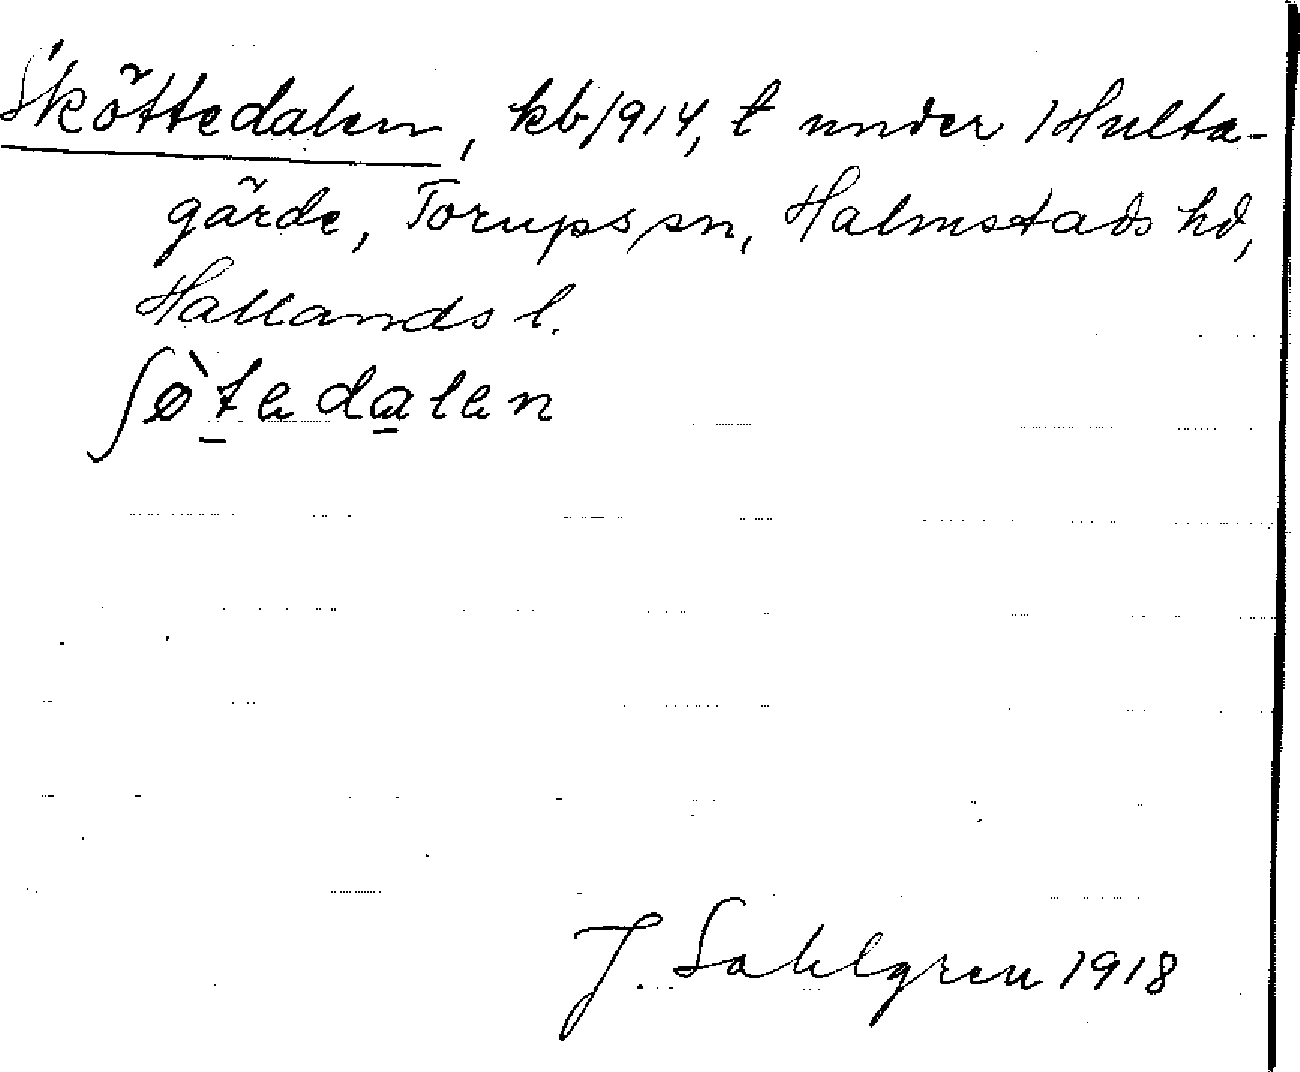 Sköttedalen, kb 1914, t under Hulta-
gärde, Torups sn, Halmstads hd,
Hallands l.
ʃø̀tedalen
J. Sahlgren 1918